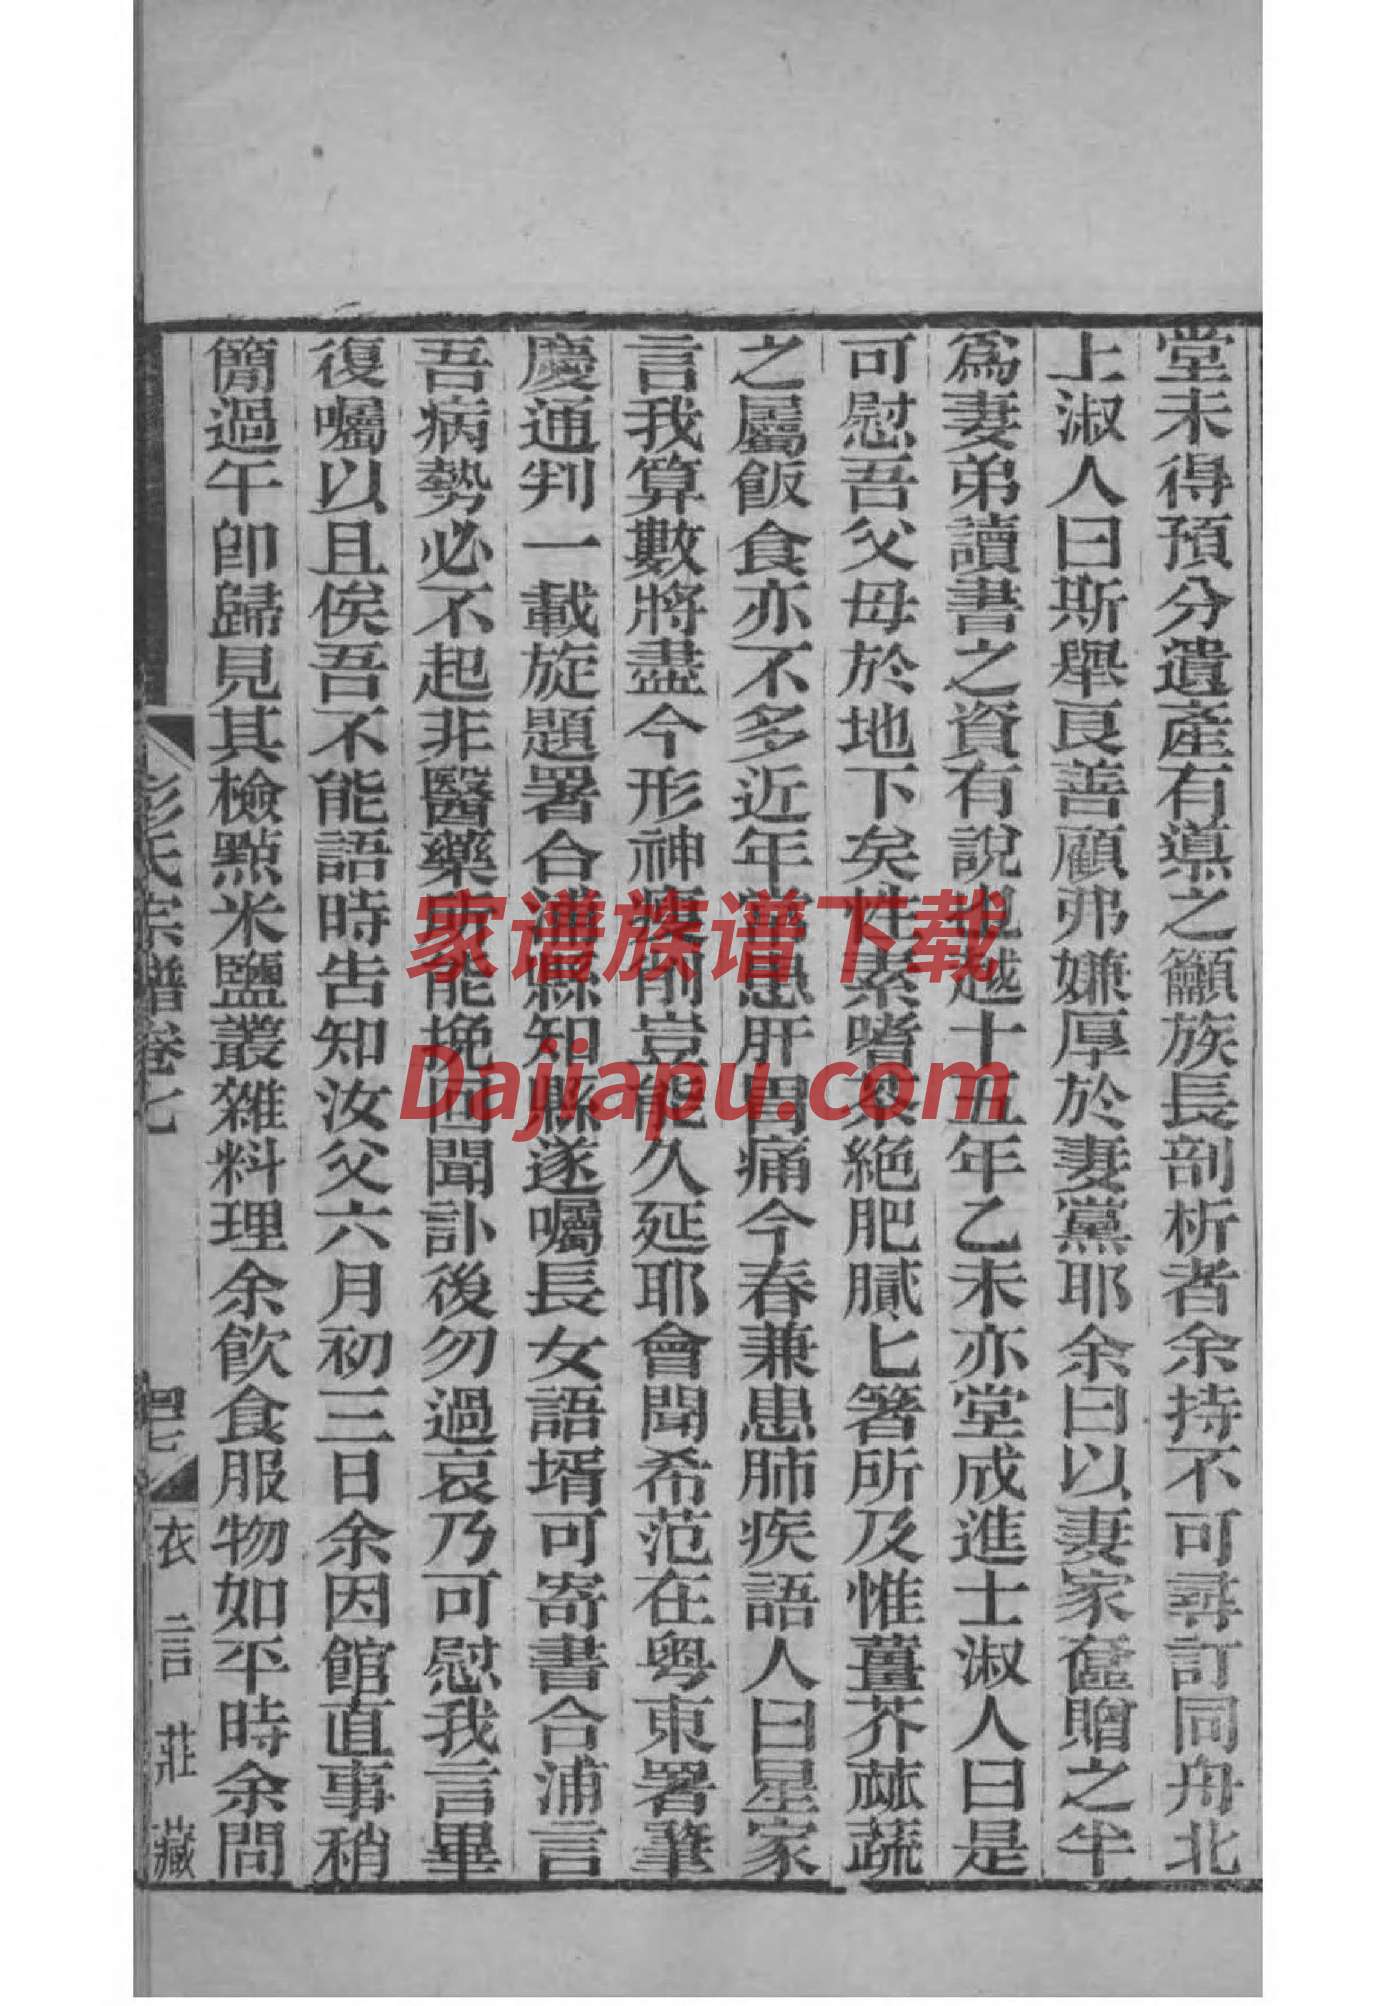 堂未得預分遺產有導之籲族長剖析者余持不可尋訂同舟北
上淑人曰斯舉良善顧弗嫌厚於妻黨耶余曰以妻家奩贈之半
爲妻弟讀書之資有說也越十五年乙未亦堂成進士淑人曰是
可慰吾父母於地下矣性素嗜茶絕肥膩匕箸所及惟薑芥蔬
之屬飯食亦不多近年常患肝胃痛今春兼患肺疾語人曰星家
言我算數將盡今形神瘦削豈能久延耶會聞希范在粵東署肇
慶通判一載旋題署合浦縣知縣遂囑長女語壻可寄書合浦言
吾病勢必不起非醫藥所能挽回聞訃後勿過哀乃可慰我言畢
復囑以且俟吾不能語時告知汝父六月初三日余因館直事稍
簡過午卽歸見其檢點米鹽叢雜料理余飲食服物如平時余問
彭氏宗譜卷七
四七
衣言莊藏
家谱族谱下载
Dajiapu.com